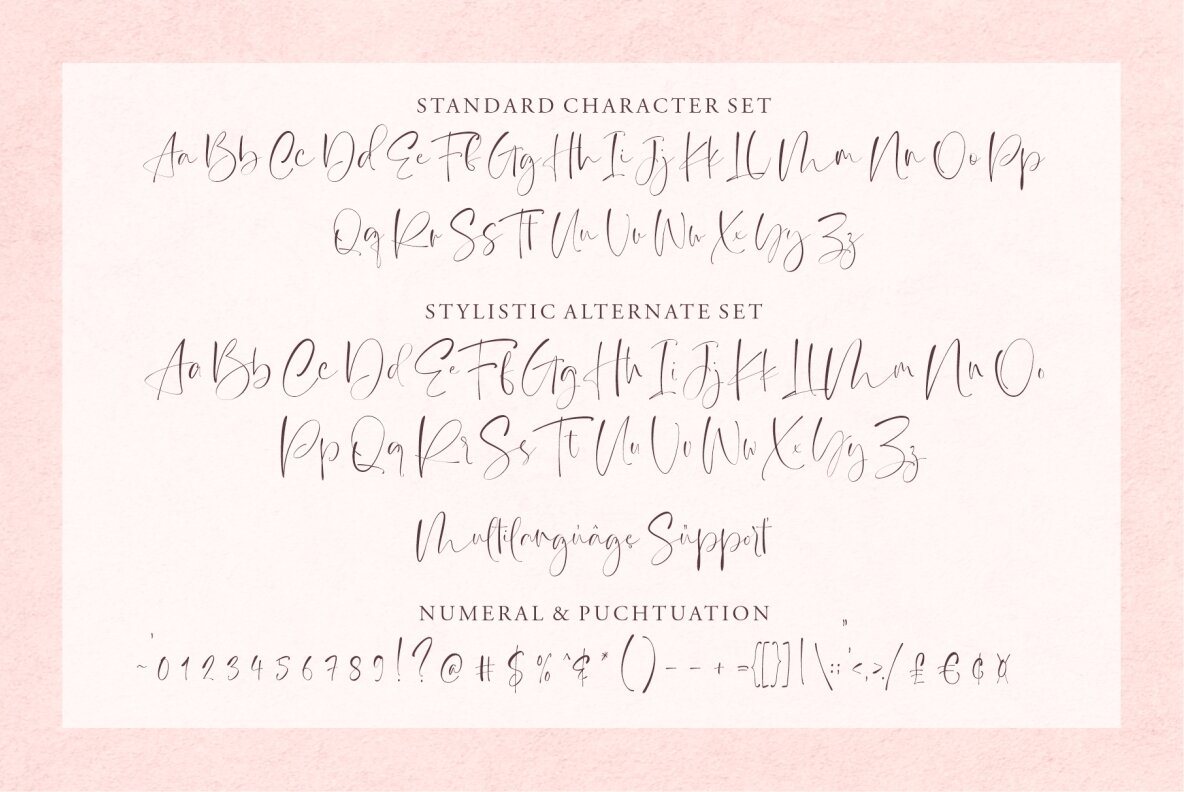 STANDARD CHARACTER SET
Aa Bb Cc Dd Ee Ff Gg Hh Ii Jj Kk Ll Mm Nn Oo Pp
Qq Rr Ss Tt Uu Vv Ww Xx Yy Zz
STYLISTIC ALTERNATE SET
Aa Bb Cc Dd Ee Ff Gg Hh Ii Jj Kk Ll Mm Nn Oo
Pp Qq Rr Ss Tt Uu Vv Ww Xx Yy Zz
Multilangùâgę Süpport
NUMERAL & PUCHTUATION
~ ' 0 1 2 3 4 5 6 7 8 9 ! ? @ # $ % ^ & * ( ) - - + = { [ ] } ] | \ : ; " ' < , > . / £ € ¢ ¤